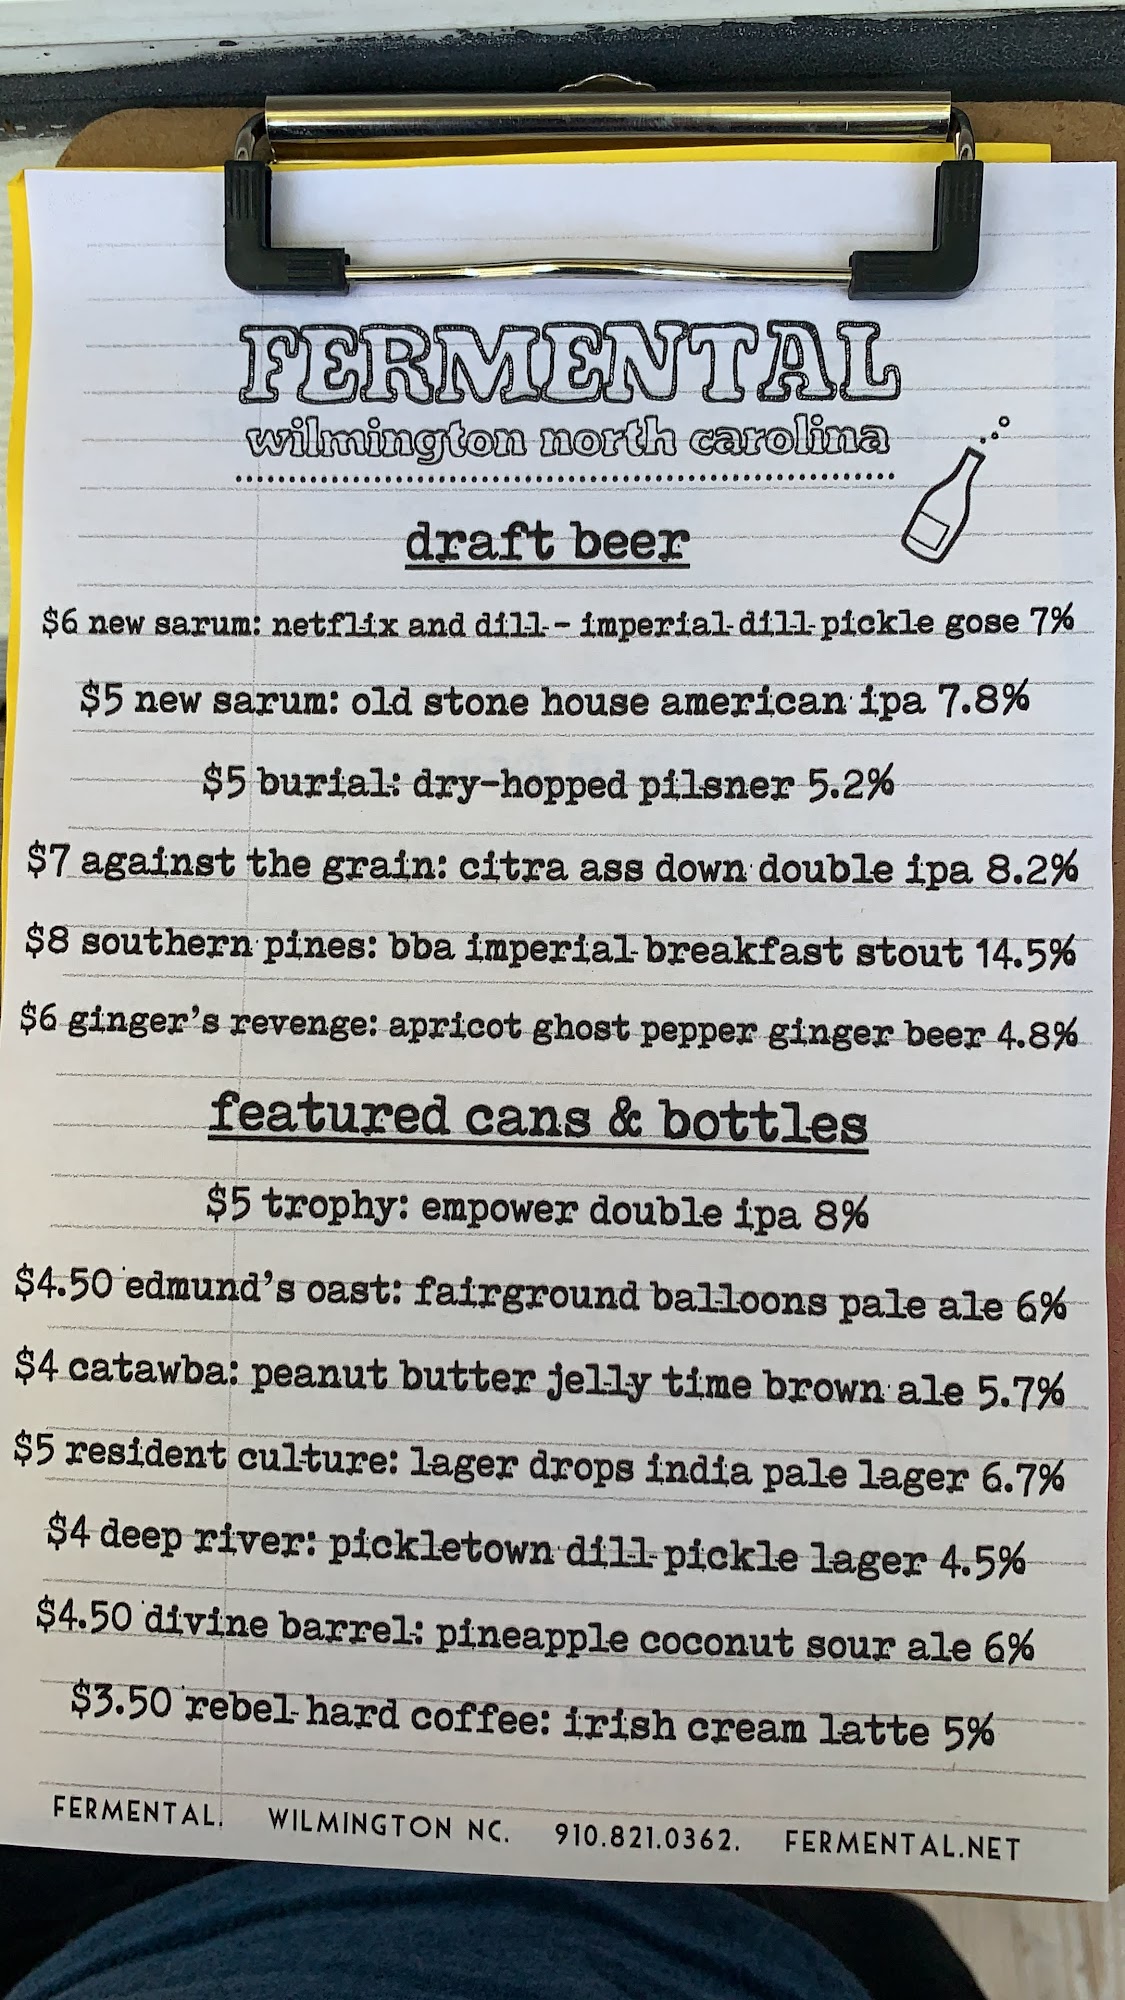 FERMENTAL
wilmington north carolina
draft beer
$6 new sarum: netflix and dill - imperial dill pickle gose 7%
$5 new sarum: old stone house american ipa 7.8%
$5 burial: dry-hopped pilsner 5.2%
$7 against the grain: citra ass down double ipa 8.2%
$8 southern pines: bba imperial breakfast stout 14.5%
$6 ginger's revenge: apricot ghost pepper ginger beer 4.8%
featured cans & bottles
$5 trophy: empower double ipa 8%
$4.50 edmund's oast: fairground balloons pale ale 6%
$4 catawba: peanut butter jelly time brown ale 5.7%
$5 resident culture: lager drops india pale lager 6.7%
$4 deep river: pickletown dill pickle lager 4.5%
$4.50 divine barrel: pineapple coconut sour ale 6%
$3.50 rebel hard coffee: irish cream latte 5%
FERMENTAL. WILMINGTON NC. 910.821.0362. FERMENTAL.NET